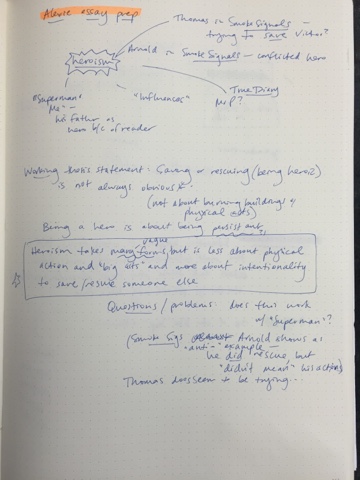 Alexie essay prep
Thomas in Smoke Signals —
trying to save Victor?
Arnold in Smoke Signals - conflicted hero
heroism
"Superman +
Me" —
his father as
hero b/c of reader
"Influences"
True Diary
Mr P?
Working thesis statement: Saving or rescuing (being heroic)
is not always obvious
(not about burning buildings +
physical acts)
Being a hero is about being persistent,
vague
Heroism takes many forms, but is less about physical
action and "big acts" and more about intentionality
to save/rescue someone else
Questions / problems: does this work
w/ "Superman"?
(Smoke Sigs Arnold shows as
"anti-" example —
he did rescue, but
"didn't mean" his actions)
Thomas does seem to be trying...